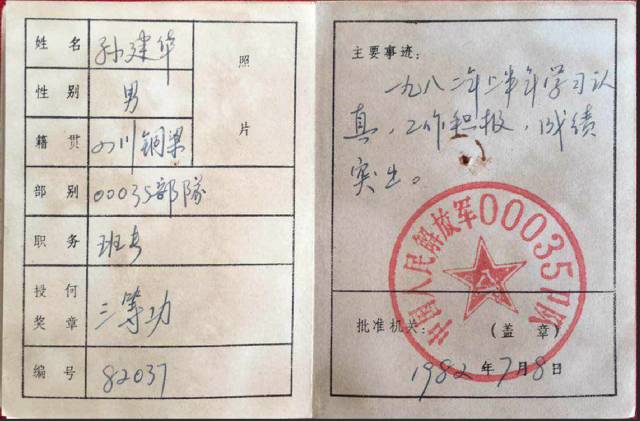 姓名 孙建华
照片
性别 男
籍贯 四川铜梁
部别 00035部隊
职务 班长
授何奖章 三等功
编号 82037
主要事迹:
一九八二年上半年学习认
真,工作积极,成绩
突出。
中国人民解放军00035部队
批准机关: (盖章)
1982年7月8日